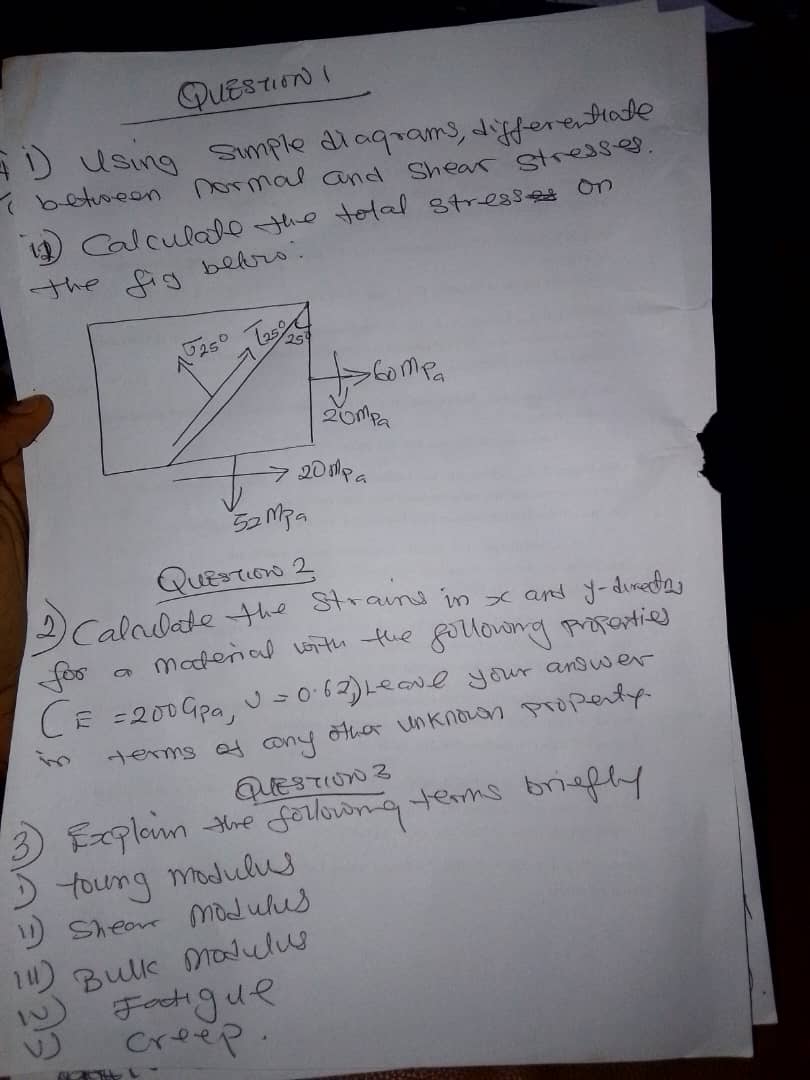 QUESTION 1
i) Using simple diagrams, differentiate
between normal and shear stresses.
ii) Calculate the total stress on
the fig below:
σ25° τ25° 25°
60MPa
20MPa
20MPa
52MPa
QUESTION 2
2) Calculate the strains in x and y-direction
for a material with the following properties
(E = 200Gpa, υ = 0.62) Leave your answer
in terms of any other unknown property.
QUESTION 3
3) Explain the following terms briefly
i) Young modulus
ii) Shear modulus
iii) Bulk modulus
iv) Fatigue
v) Creep.